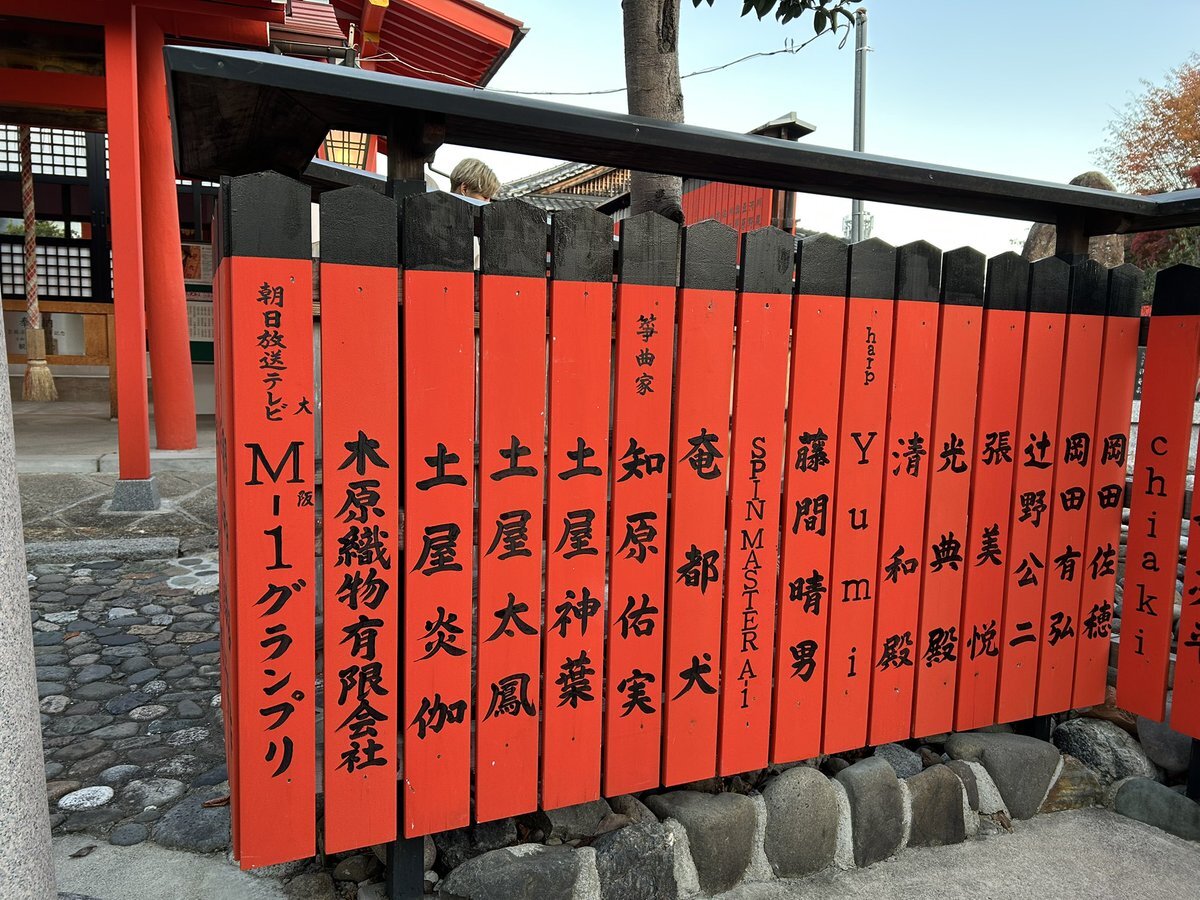 朝日放送テレビ
大阪
M-1グランプリ
木原織物有限会社
土屋炎伽
土屋太鳳
土屋神葉
箏曲家
知原佑実
奄都犬
SPIN MASTER A-1
藤間晴男
harp
Yumi
清和殿
光典殿
張美悦
辻野公二
岡田有弘
岡田佐穂
chiaki